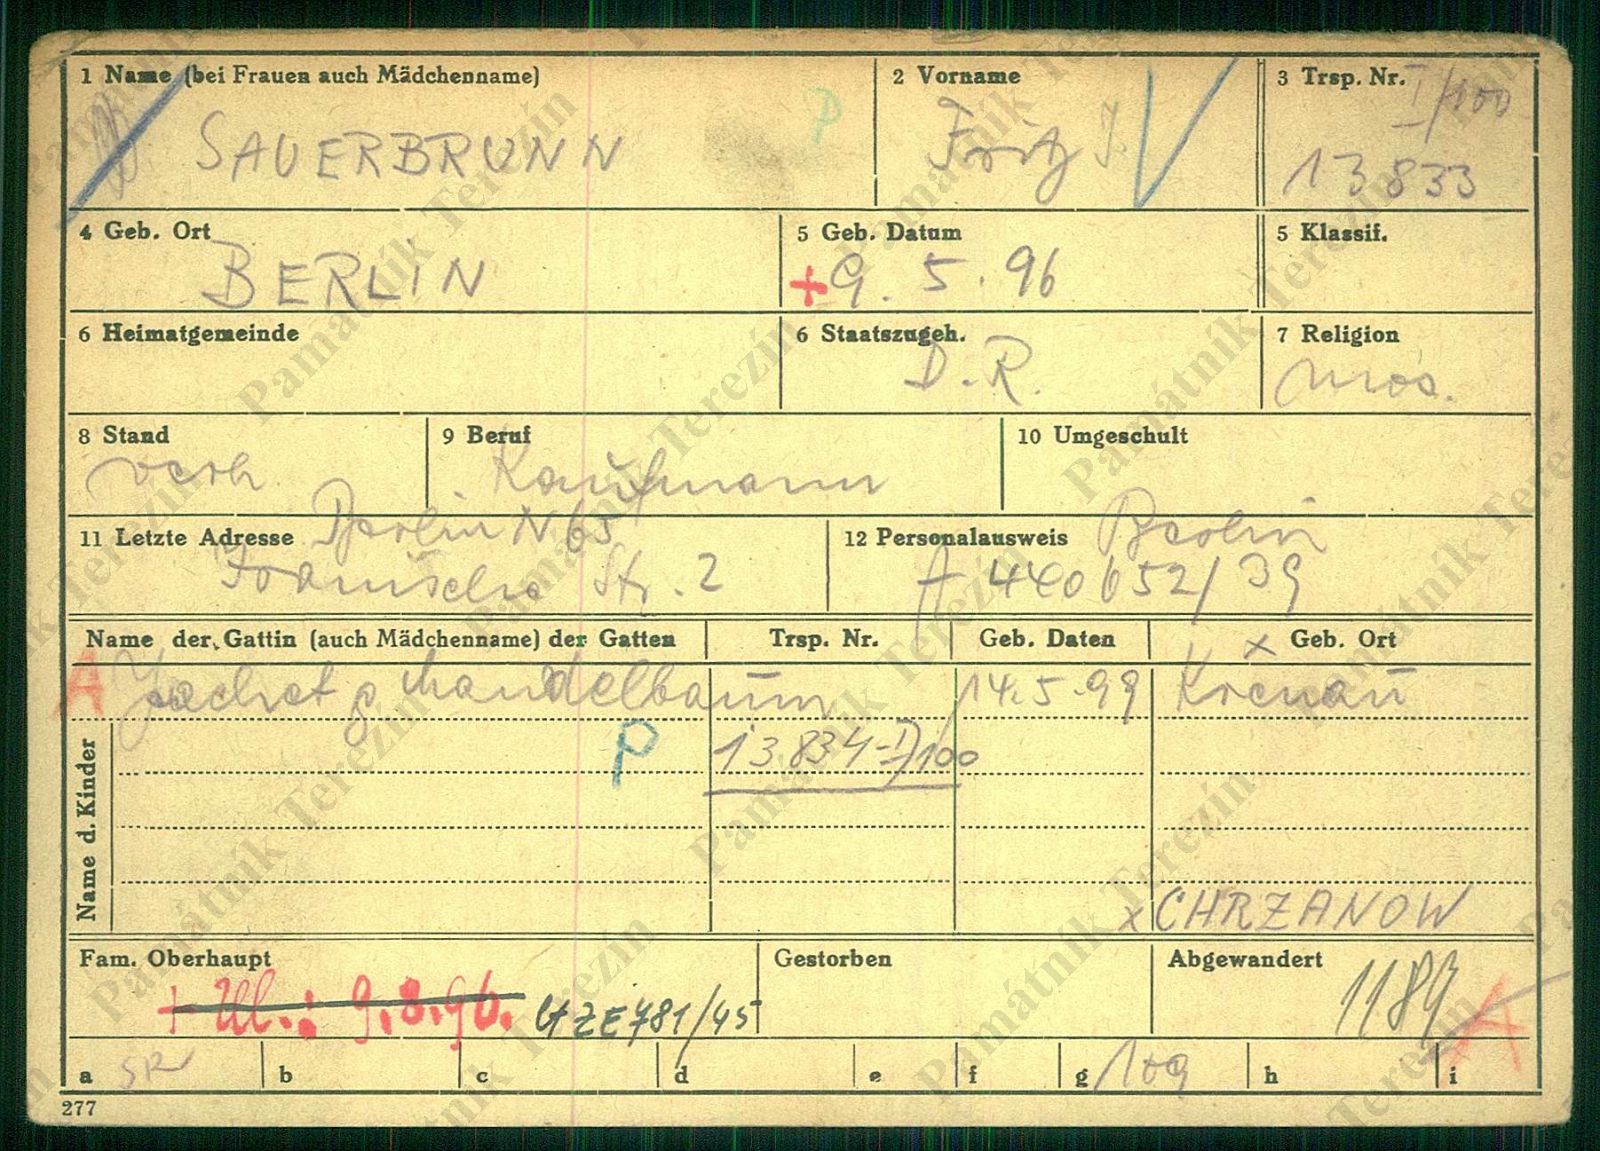 1 Name (bei Frauen auch Mädchenname)
SAUERBRUNN
P
2 Vorname
Fritz I.
3 Trsp. Nr. I/100
13833
4 Geb. Ort
BERLIN
5 Geb. Datum
+ 9. 5. 96
5 Klassif.
6 Heimatgemeinde
6 Staatszugeh.
D. R.
7 Religion
mos.
8 Stand
verh
9 Beruf
Kaufmann
10 Umgeschult
11 Letzte Adresse Berlin N 65
Iranische Str. 2
12 Personalausweis Berlin
A 440652/39
Name der Gattin (auch Mädchenname) der Gatten
Trsp. Nr.
Geb. Daten
x Geb. Ort
A Jachet g Mandelbaum
14.5.99
Krenau
P
13834-I/100
Name d. Kinder
x CHRZANOW
Fam. Oberhaupt
+ Ul.: 9.8.96. GZE 781/45
Gestorben
Abgewandert
1189 A
a SR
b
c
d
e
f
g 109
h
i
277
Památník Terezín